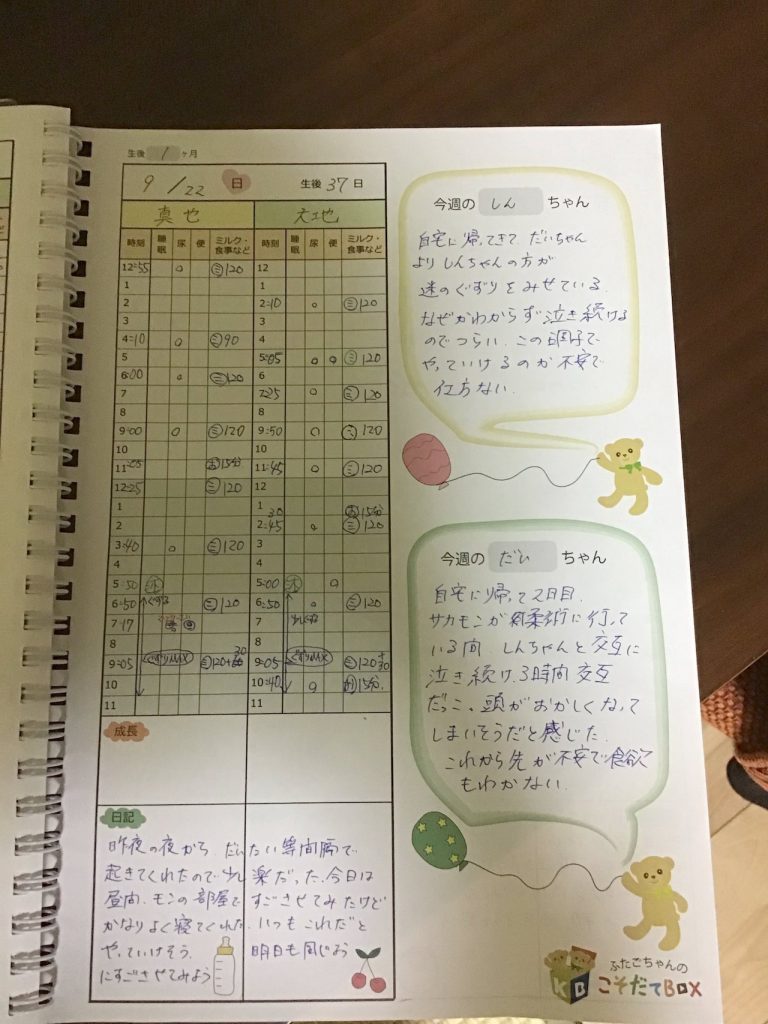 生後 1 ヶ月
9/22 日 生後 37 日
真也 大地
時刻 睡眠 尿 便 ミルク・食事など 時刻 睡眠 尿 便 ミルク・食事など
12:55 ○ ㋯120 12
1 1
2 2:10 ○ ㋯120
3 3
4:10 ○ ㋯90 4
5 5:05 ○ ○ ㋯120
6:00 ○ ㋯120 6
7 7:25 ○ ㋯120
8 8
9:00 ○ ㋯120 9:50 ○ 120
10 10
11:05 15分 11:45 ○ ㋯120
12:25 ㋯120 12
1 1 30 15分
2 2:45 ○ ㋯120
3:40 ○ ㋯120 3
4 4
5:50 5:00 ○
6:50 ぐずる ㋯120 6:50 ○ ㋯120
7:17 7
8 8
9:05 ぐずりMAX ㋯120+30 9:05 ぐずりMAX ㋯120+30
10 10:40 ○ 15分
11 11
成長
日記
昨夜の夜から だいたい等間隔で
起きてくれたので少し楽だった。今日は
昼間、モンの部屋ですごさせてみたけど
かなりよく寝てくれた。いつもこれだと
やっていけそう。明日も同じよう
にすごさせてみよう
今週の しん ちゃん
自宅に帰ってきて、だいちゃん
よりしんちゃんの方が
謎のぐずりをみせている。
なぜかわからず泣き続ける
のでつらい。この調子で
やっていけるのか不安で
仕方ない。
今週の だい ちゃん
自宅に帰って2日目。
サカモンが 柔術に行って
いる間、しんちゃんと交互に
泣き続け、3時間交互
だっこ、頭がおかしくなって
しまいそうだと感じた。
これから先が不安で食欲
もわかない。
ふたごちゃんの
こそだてBOX
KB